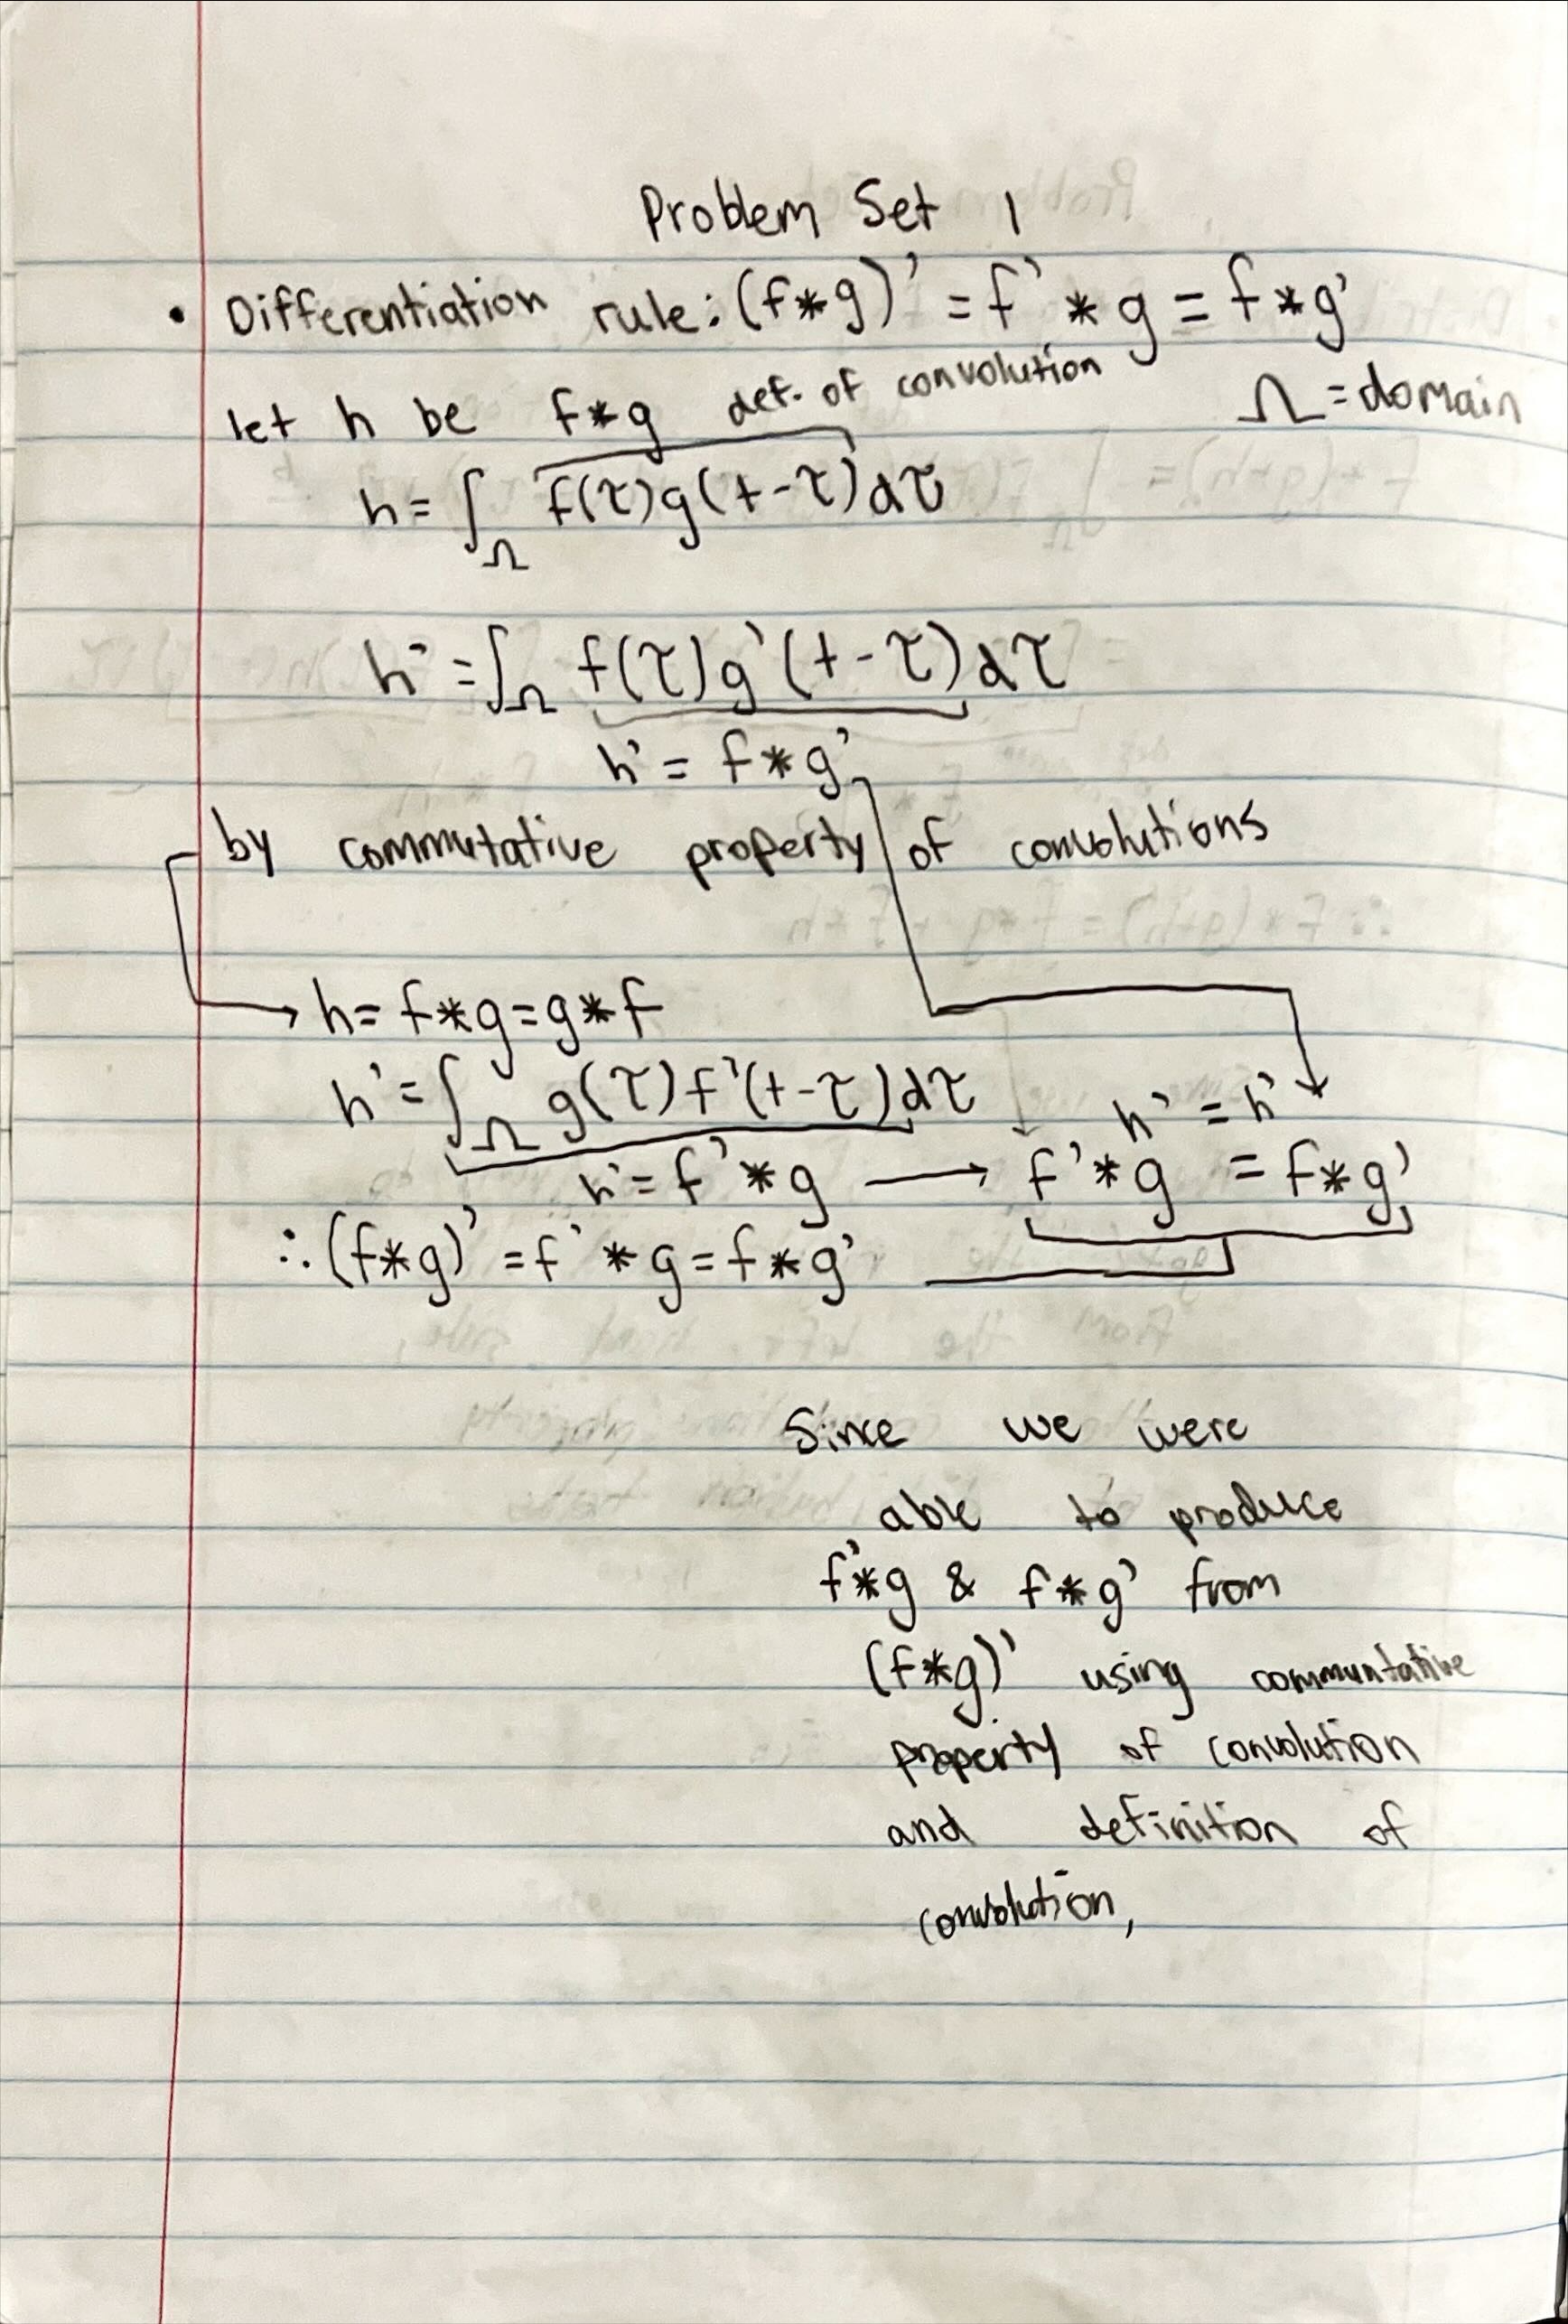 Problem Set 1
• Differentiation rule: (f*g)' = f' * g = f * g'
let h be f*g def. of convolution Ω = domain
h = ∫_Ω f(τ)g(t-τ)dτ
h' = ∫_Ω f(τ)g'(t-τ)dτ
h' = f*g'
by commutative property of convolutions
h = f*g = g*f
h' = ∫_Ω g(τ)f'(t-τ)dτ h' = h'
h' = f' * g → f' * g = f*g'
∴ (f*g)' = f' * g = f*g'
Since we were
able to produce
f'*g & f*g' from
(f*g)' using communtative
property of convolution
and definition of
convolution,